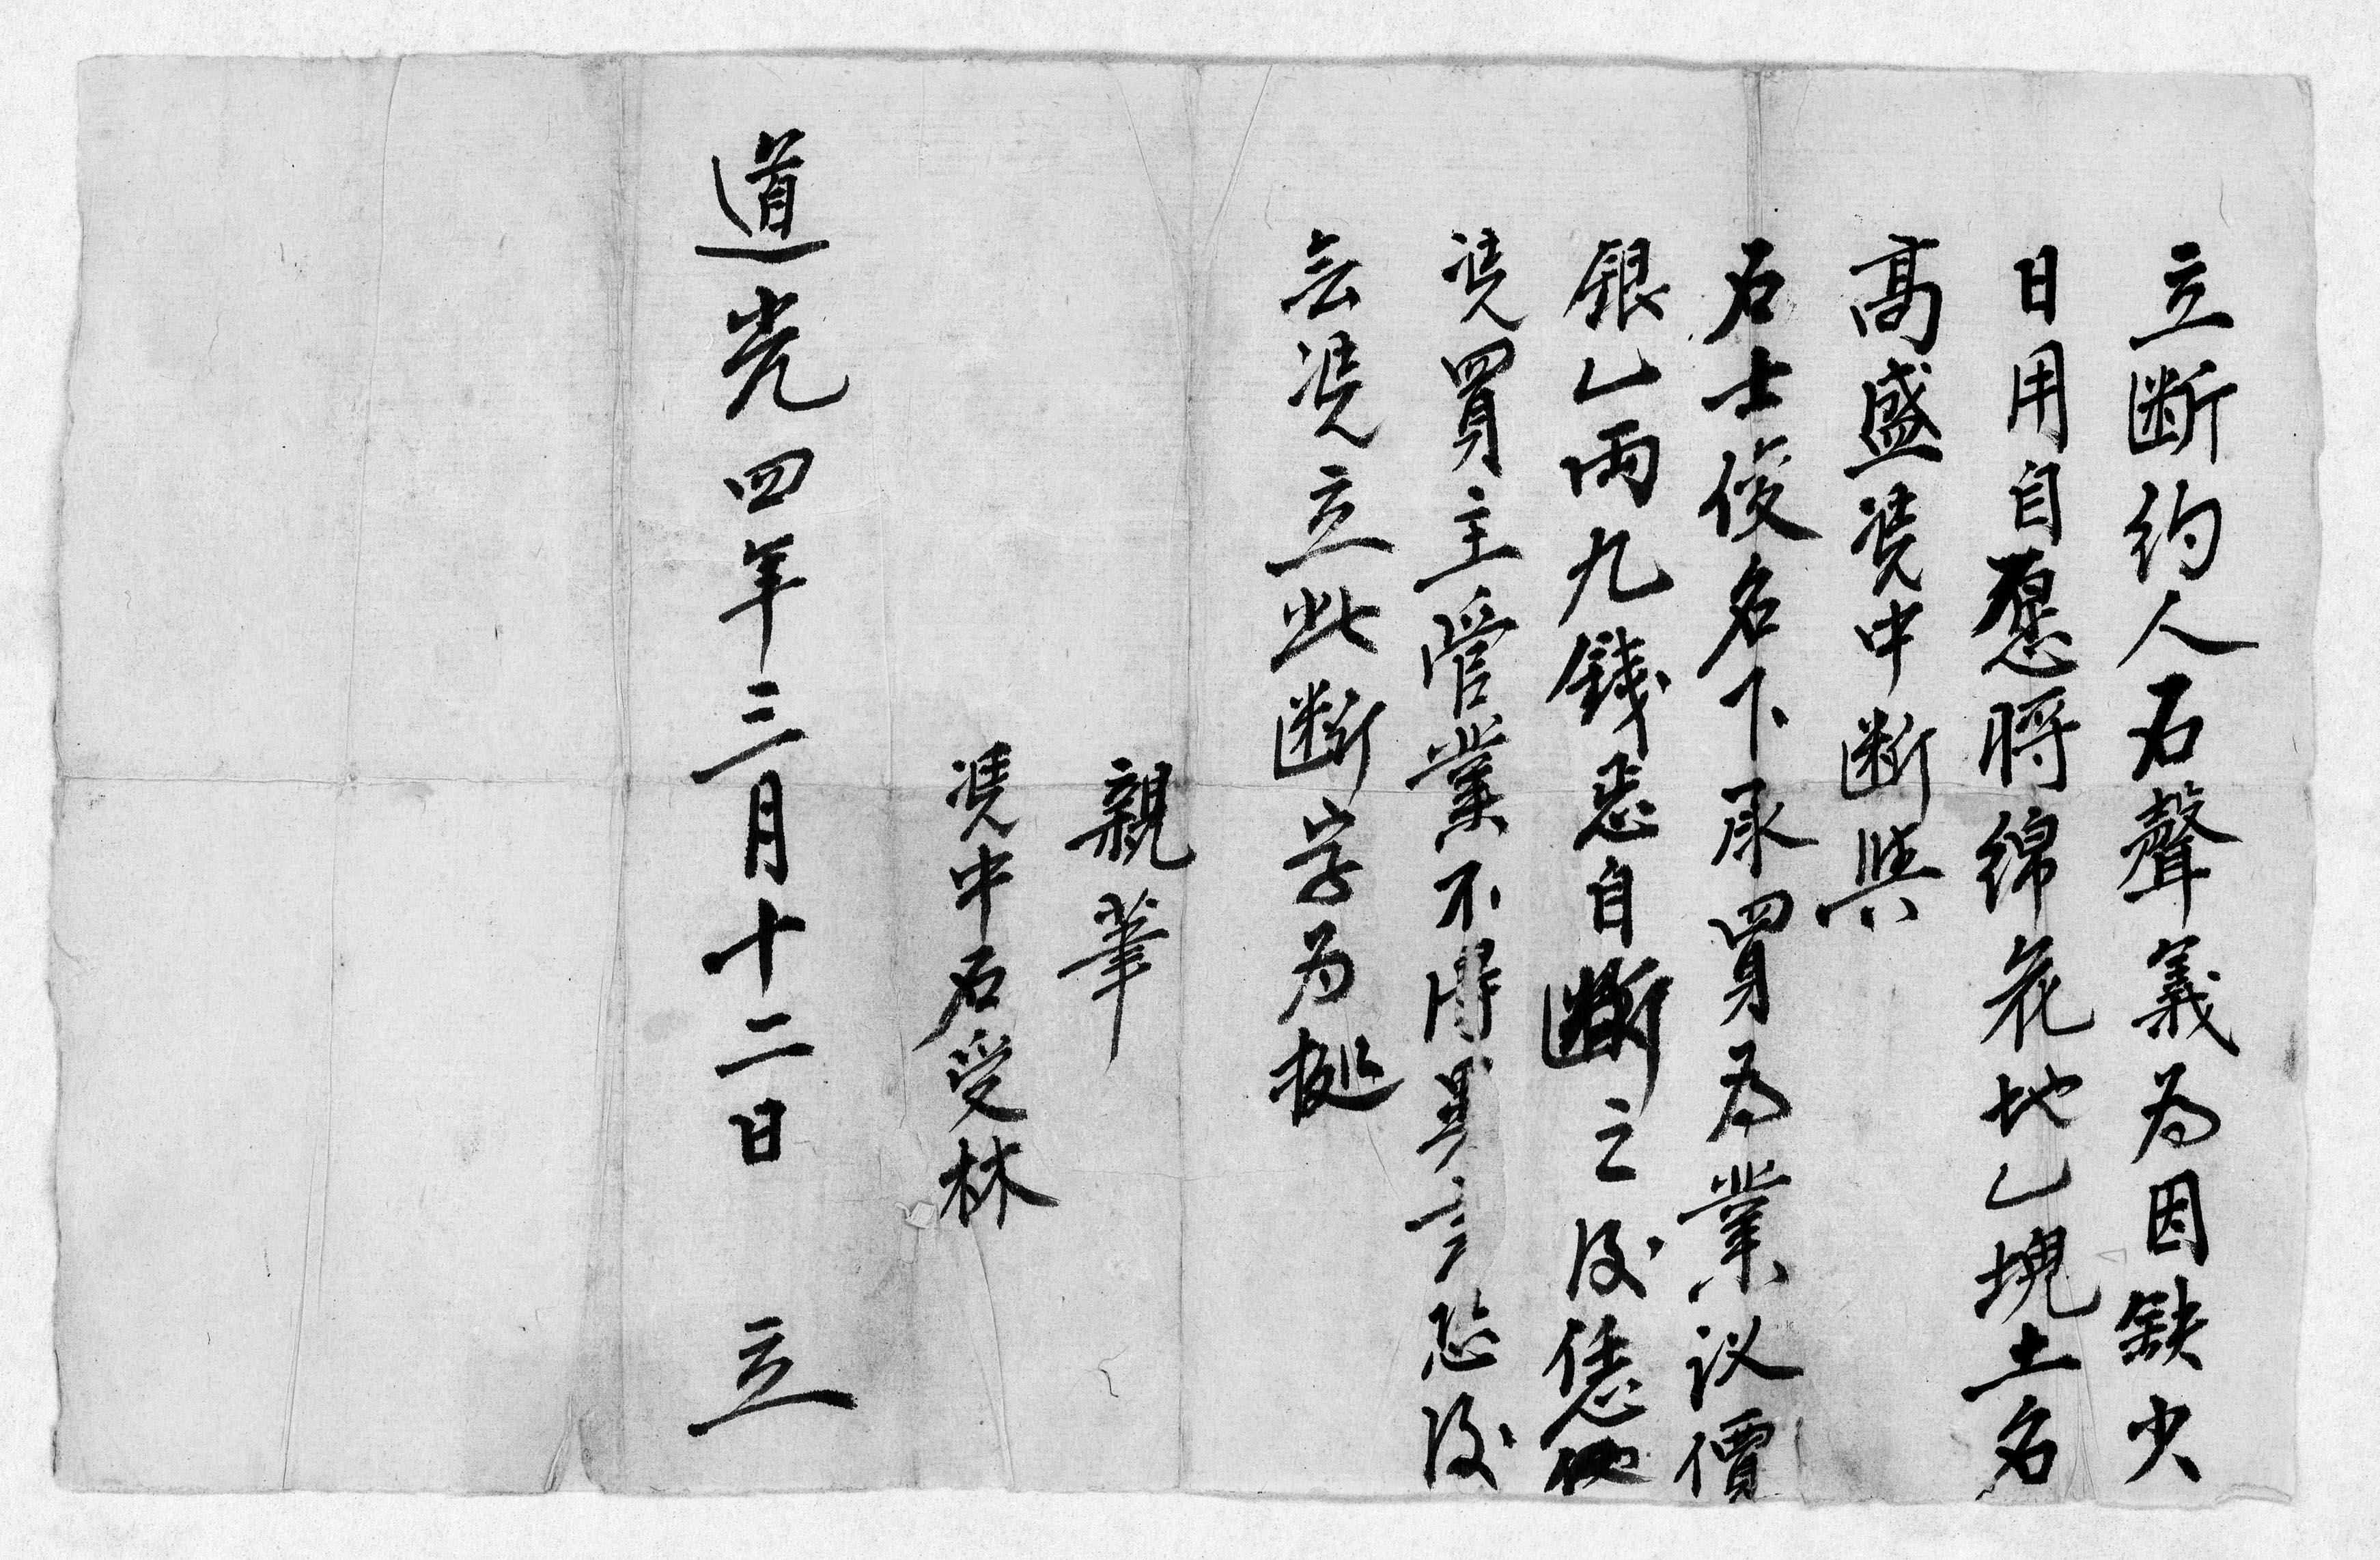 立断约人石聲義為因缺少
日用自愿將綿花地乙塊土名
髙盛凴中断與
石士俊名下承買為業议價
銀乙两九錢悉自断之後任
凴買主管業不得異言恐後
無凴立此断字为拠
親筆
凴中石受林
道光四年三月十二日 立